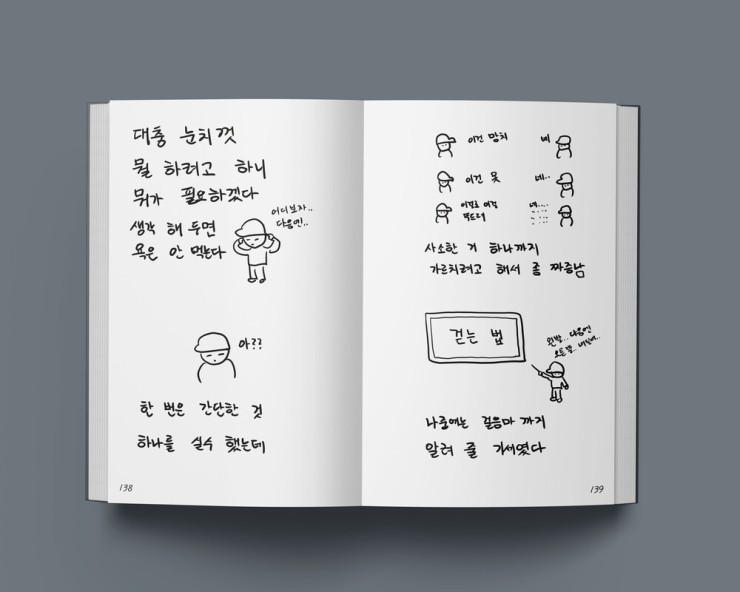 대충 눈치껏
뭘 하려고 하니
뭐가 필요하겠다
생각 해 두면
욕은 안 먹는다
어디보자..
다음엔..
아??
한 번은 간단한 것
하나를 실수 했는데
138
이건 망치
네
이건 못
네..
이걸로 이걸
네....
사소한 거 하나까지
가르치려고 해서 좀 짜증남
걷는 법
왼발.. 다음엔
오른발..
나중에는 걸음마 까지
알려 줄 기세였다
139